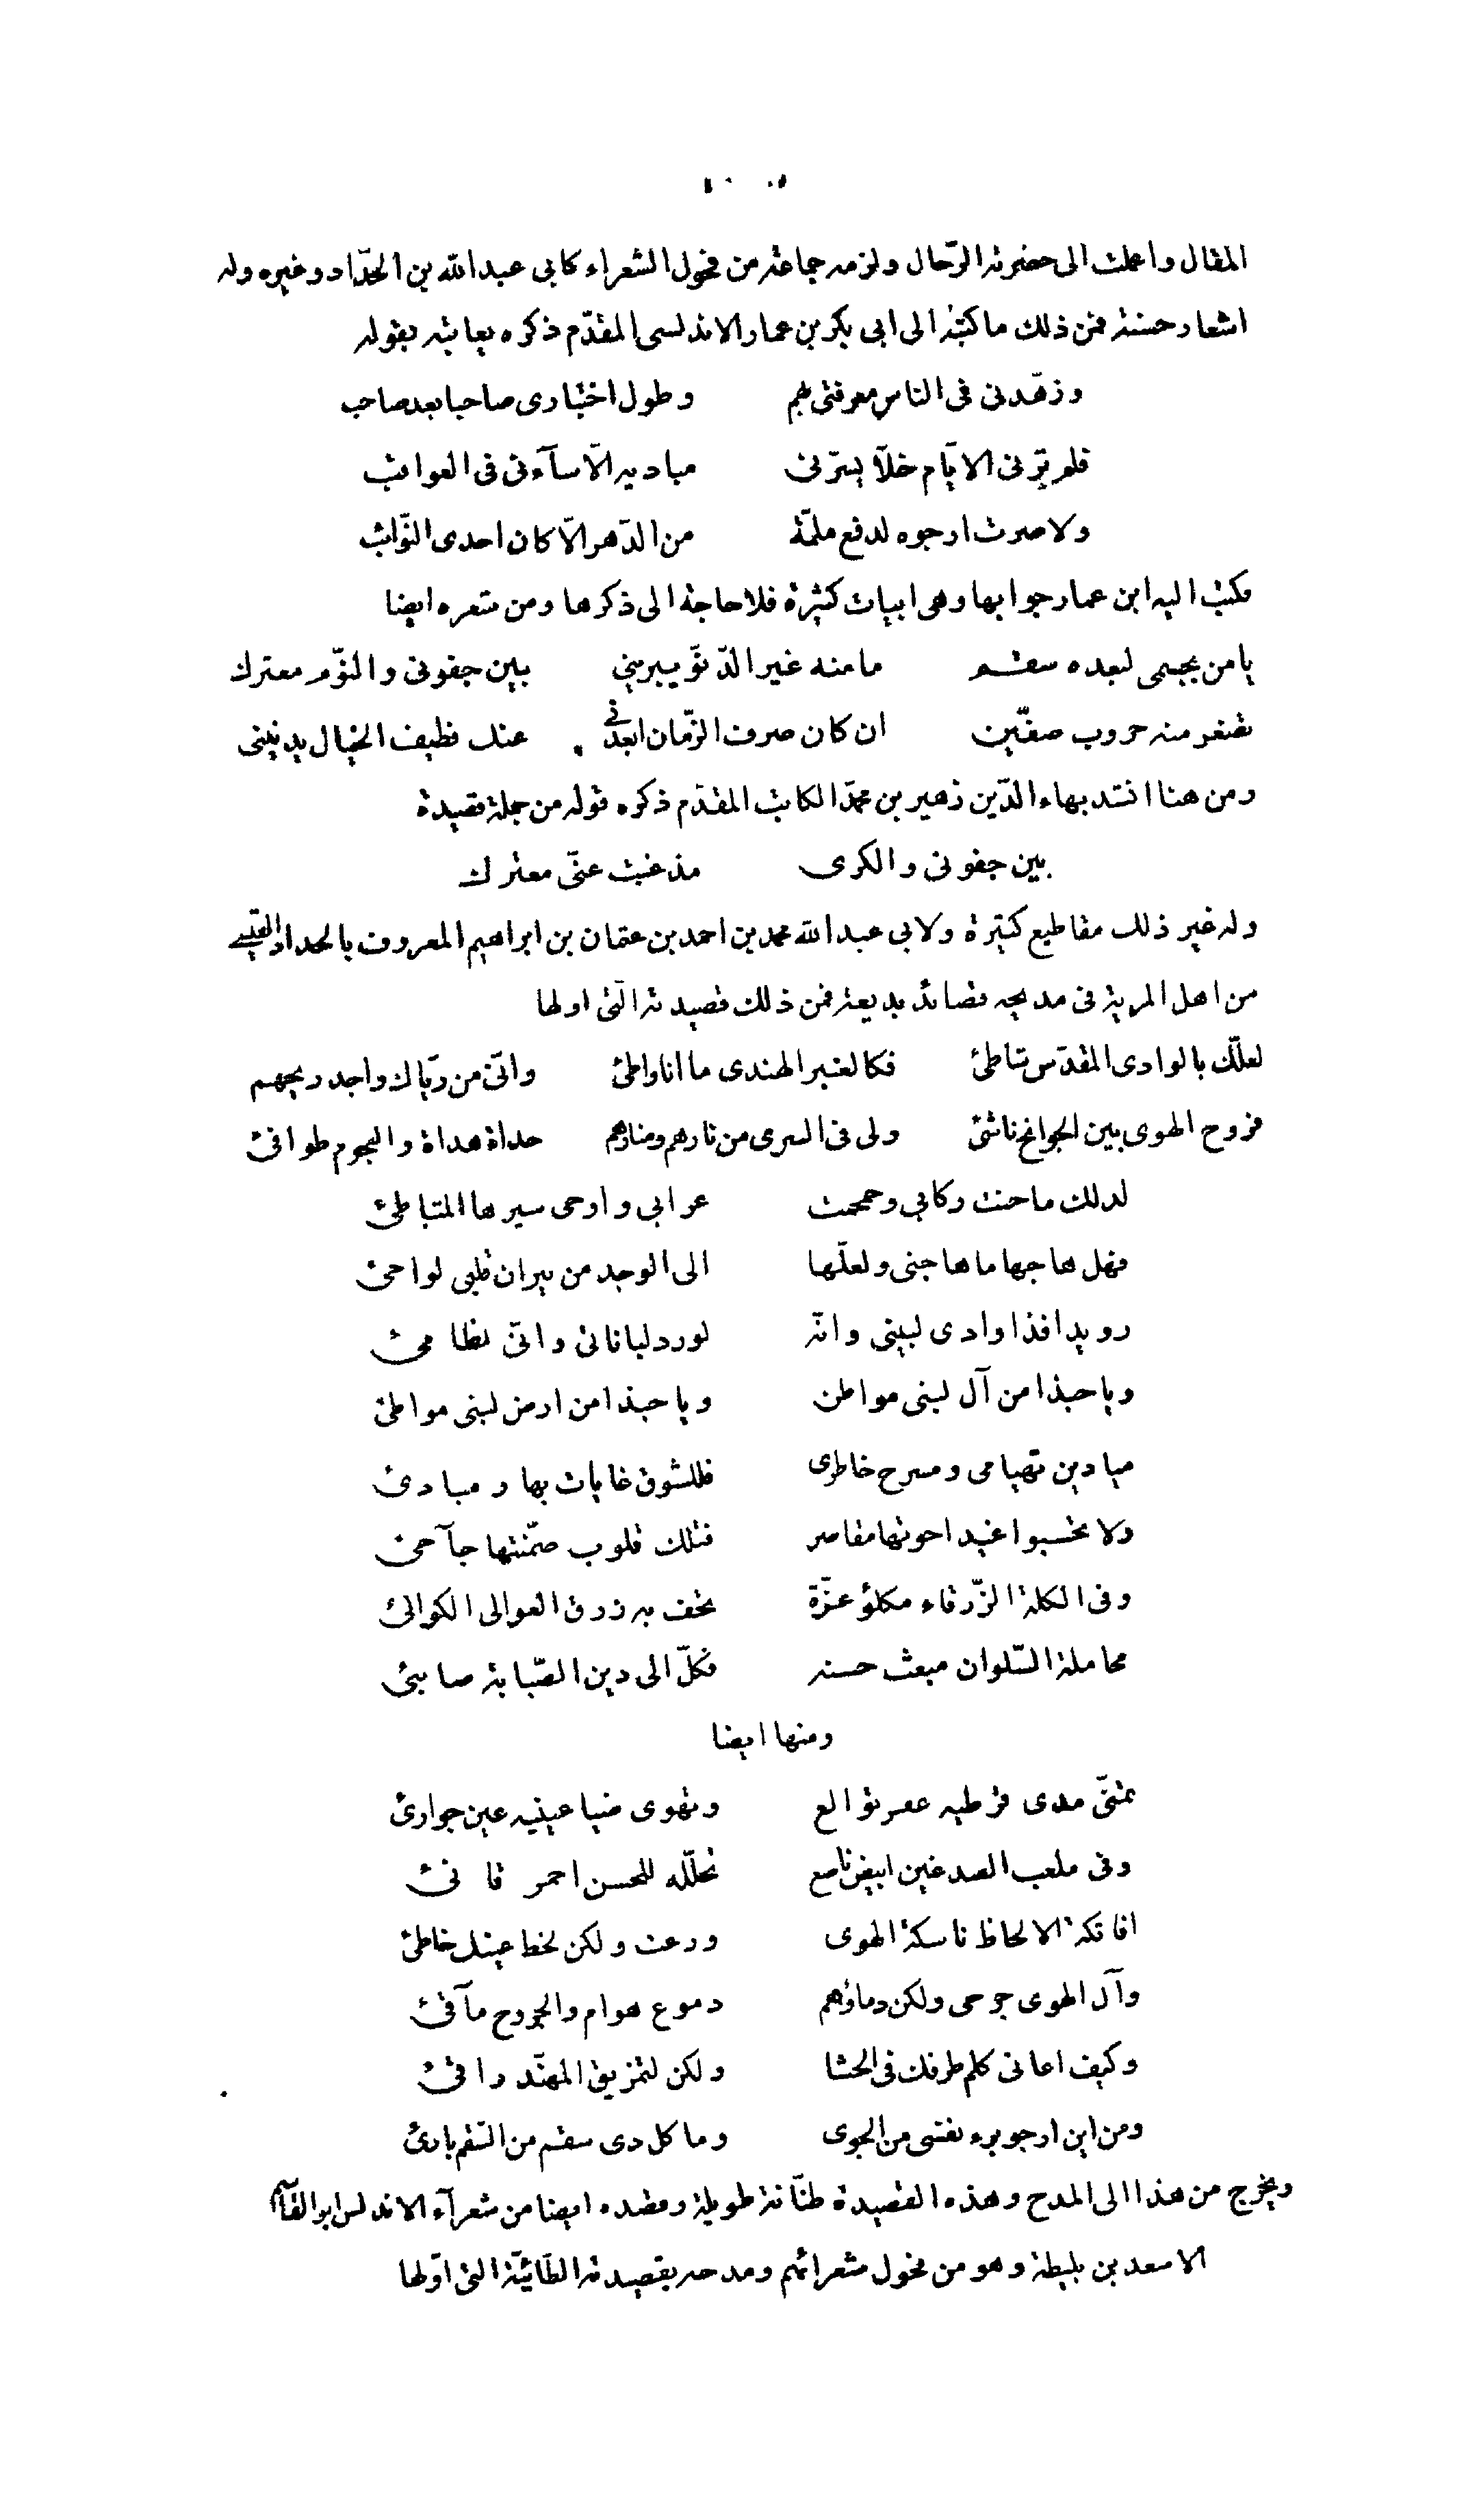 المقال واعملت الى حضرته الرّحال ولزمه جماعة من فحول الشعراء كابى عبد الله بن الحدّاد وغيره وله
اشعار حسنة فمن ذلك ما كتبه الى ابى بكر بن عمار الاندلسى المقدّم ذكره يعاتبه بقوله
وزهّدنى فى الناس معرفتى بهم وطول اختبارى صاحبا بعد صاحب
فلم ترنى الايّام خلّا يسرّنى مباديه الّا سآءنى فى العواقب
ولا صرت ارجوه لدفع ملمّة من الدّهر الّا كان احدى النّوائب
فكتب اليه ابن عمار جوابها وهى ابيات كثيرة فلا حاجة الى ذكرها ومن شعره ايضا
يا من بجسمى لبعده سقم ما منه غير الدّنوّ يبرينى بين جفونى والنوّم معترك
تصغر منه حروب صفّين ان كان صرف الزّمان ابعدنى عنك فطيف الخيال يدنينى
ومن هنا اخذ بهاء الدّين زهير بن محمّد الكاتب المقدّم ذكره قوله من جملة قصيدة
بين جفونى والكرى مذ غبت عنّى معترك
وله غير ذلك مقاطيع كثيرة ولابى عبد الله محمد بن احمد بن عثمان بن ابراهيم المعروف بالحداد القيسى
من اهل المرية فى مديحه قصائد بديعة فمن ذلك قصيدته الّتى اولها
لعلّك بالوادى المقدّس شاطئ فكالعنبر الهندى ما انا واطئ وانّى من ريّاك واجد ريحهم
فروح الهوى بين الجوانح ناشئ ولى فى السرى من نارهم ومنارهم حداة هداة والنجوم طوافئ
لذلك ما حنت ركابى وحمحمت عرابى واوحى سيرها المتباطئ
فهل هاجها ما هاجنى ولعلّها الى الوجد من نيران قلبى لواجئ
رويدا فذا وادى لبينى وانّه لورد لباناتى وانّى لظامئ
ويا حبذا من آل لبنى مواطن ويا حبذا من ارض لبنى مواطئ
ميادين تهيامى ومسرح خاطرى فللشوق غايات بها ومبادئ
ولا تحسبوا غيدا حوتها مقاصر فتلك قلوب ضمّنتها جآجئ
وفى الكلة الزّرقاء مكلؤ عزّة تحف به زرق العوالى الكوالئ
محا ملة السّلوان مبعث حسنه فكلّ الى دين الصّبابة صابئ
ومنها ايضا
تمنّى مدى قرطيه عفر توالع وتهوى ضيا عينيه عين جوازئ
وفى ملعب الصدغين ابيض ناصع تخلّله للحسن احمر قانئ
افاتكة الالحاظ ناسكة الهوى ورعت ولكن لحظ عينك خاطئ
وآل الهوى جرحى ولكن دماؤهم دموع هوام والجروح مآقئ
وكيف اعانى كلم طرفك فى الحشا ولكن لتمزيق المهنّد رافئ
ومن اين ارجو برء نفسى من الجوى وما كل ذى سقم من السّقم بارئ
ويخرج من هذا الى المدح وهذه القصيدة طنّانة طويلة وقصده ايضا من شعرآء الاندلس ابو القاسم
الاسعد بن بليطة وهو من فحول شعرائهم ومدحه بقصيدته الطّائيّة التى اوّلها